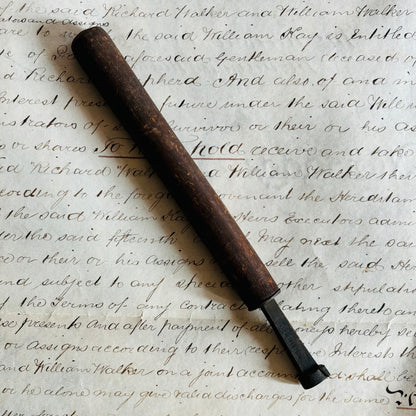 the said Richard Walker and William Walker
ators and assigns
are to survive the said William Kay is Entitled
aforesaid Gentleman deceased of
said Richard herd And also of and in
Interest future under the said Willi
istrators of survivor or their or his as
or shares To hold receive and take
Richard Walker and William Walker their
ording to the covenant the Hereditam
William Heirs Executors admi
the said fifteenth May next the sa
or their or his Assigns sell the said He
and subject to any special other stipulati
the Terms of any Contract relating thereto an
presents And after payment of all moneys hereby se
or Assigns according to their respective Interests th
and William Walker on a joint account shall be
or he alone may give valid discharges for the same